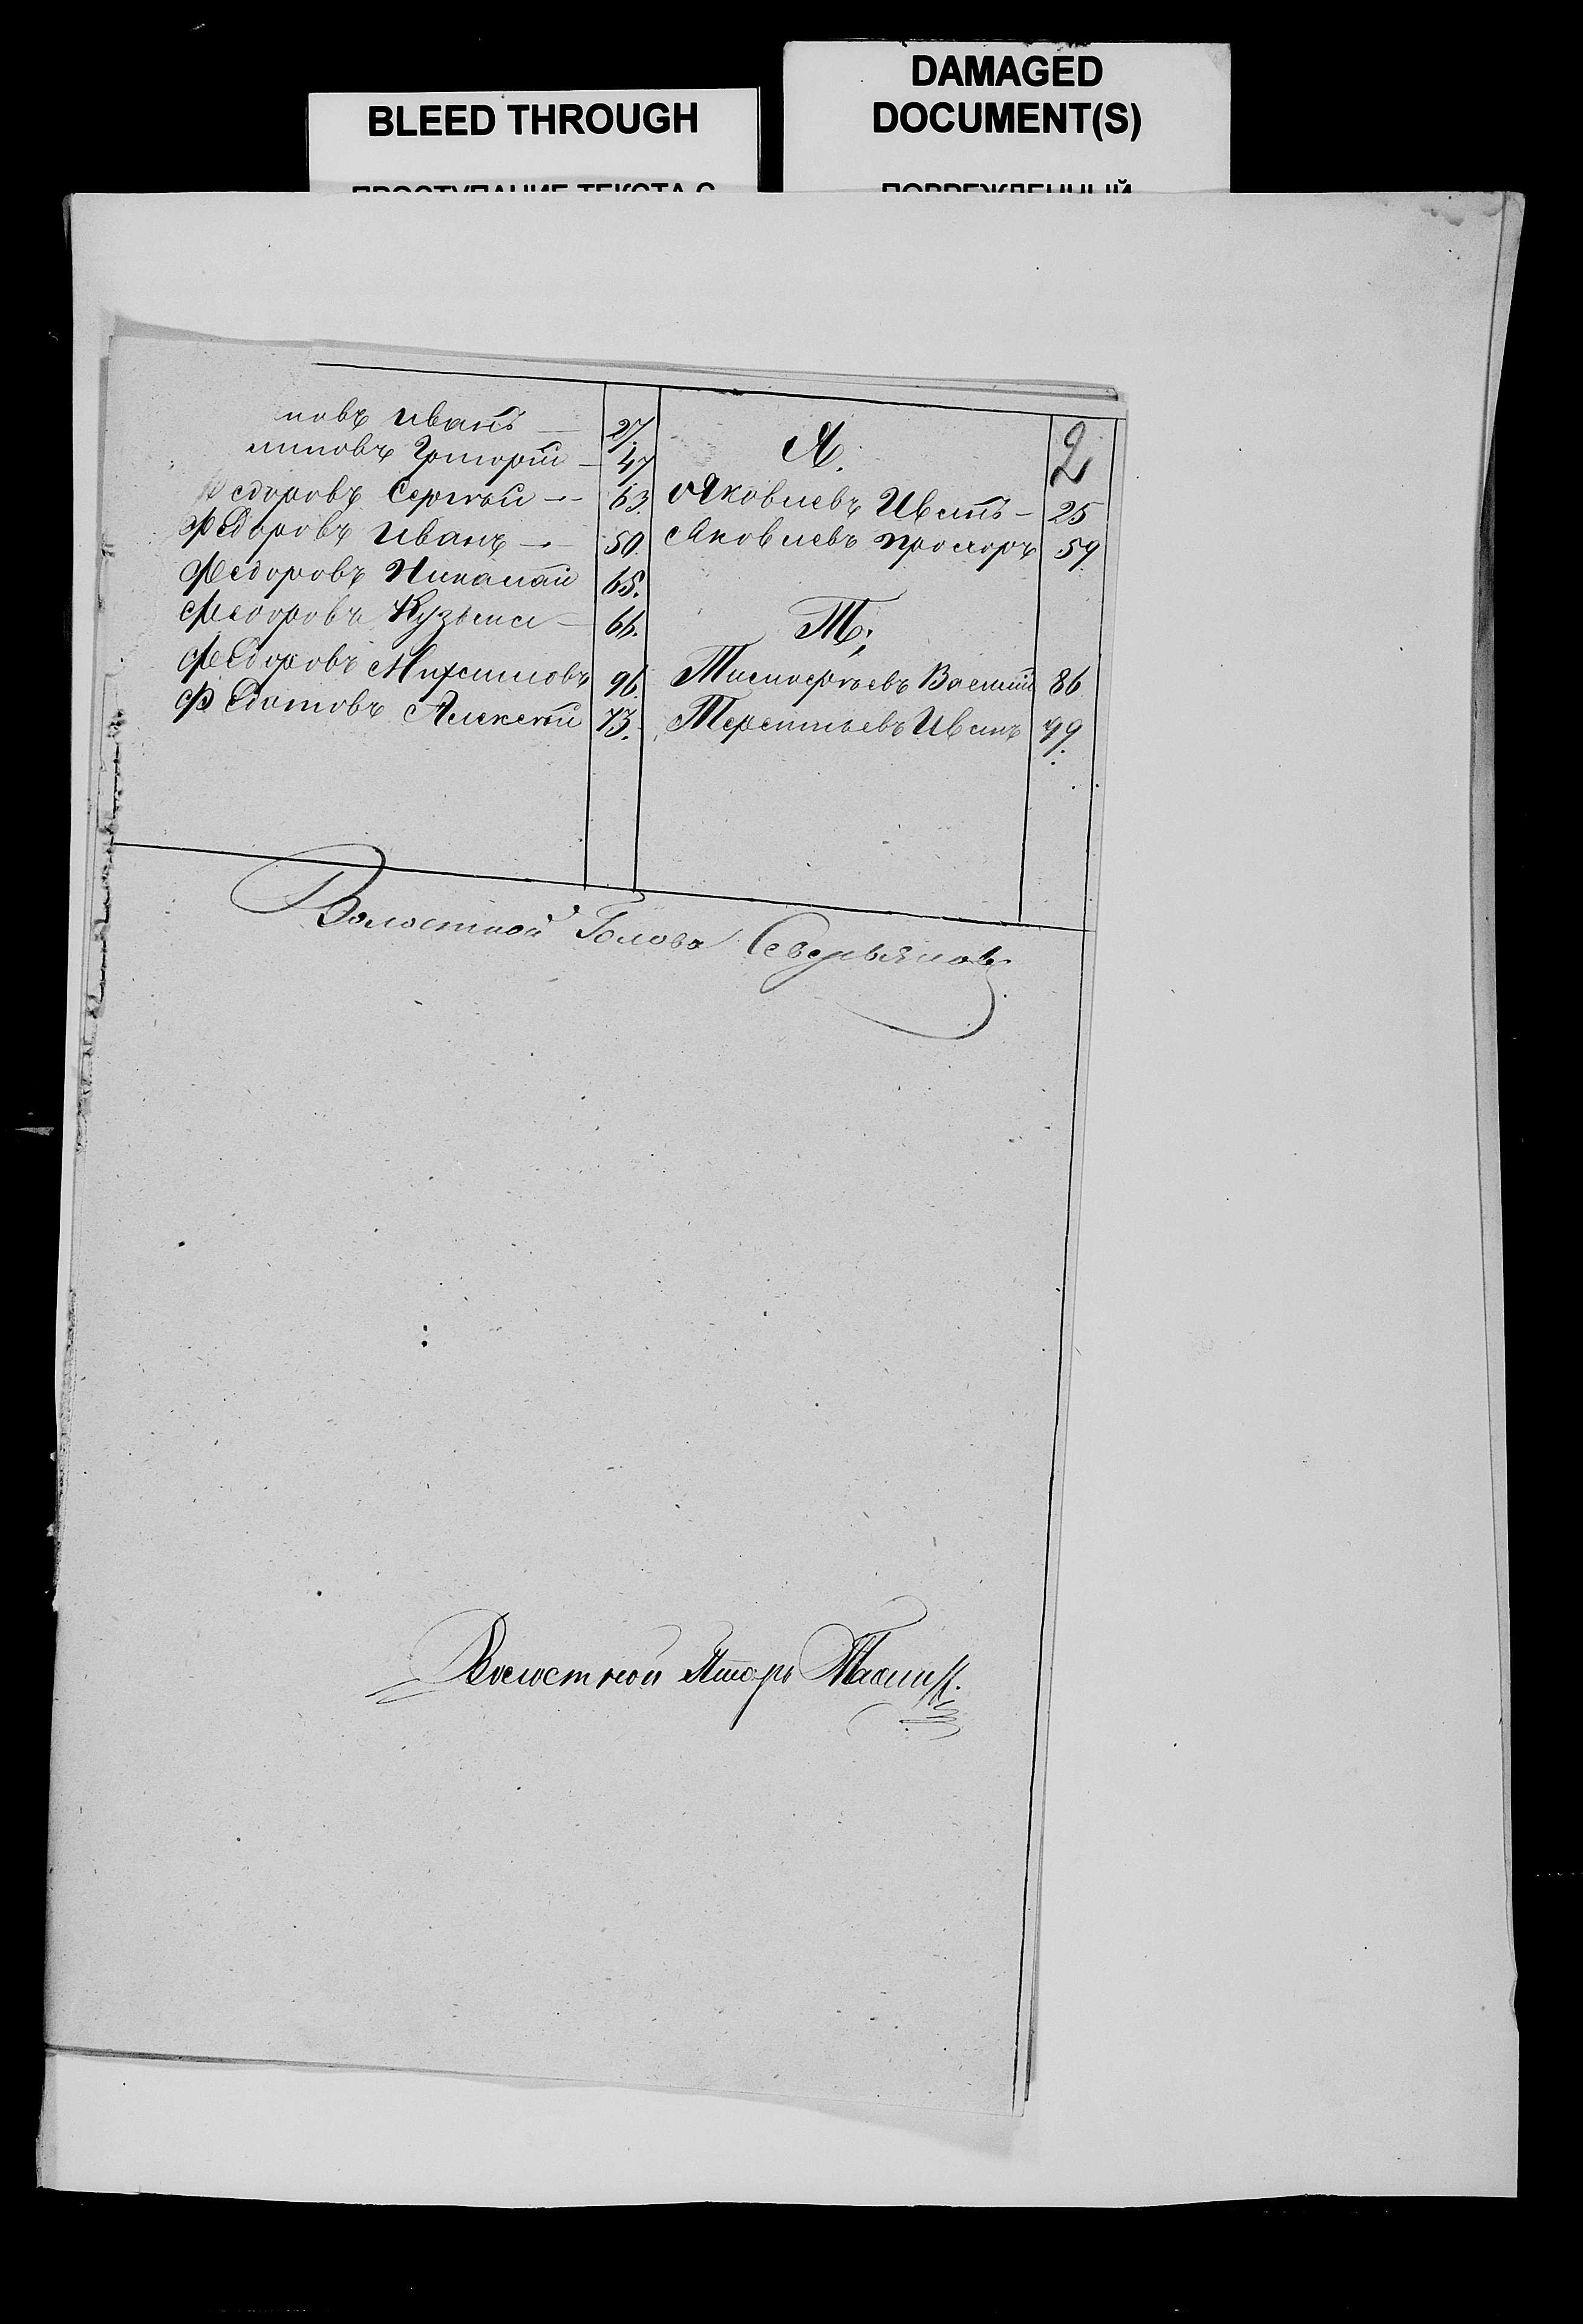 BLEED THROUGH
DAMAGED
DOCUMENT(S)
новъ Иванъ — 27.
липовъ Григорій — 47
Федоровъ Сергѣй — 63.
Федоровъ Иванъ — 50.
Федоровъ Николай 65.
Федоровъ Кузьма — 66.
Федоровъ 96.
Федотовъ Алексѣй 73.
2
Я.
Яковлевъ Иванъ — 25
Яковлевъ Прохоръ 59
Т.
Тимофѣевъ Василій 86
Терентьевъ Иванъ 99.
Волостной Голова Северьяновъ
Волостной Писарь